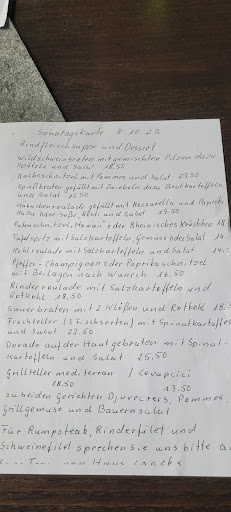 Sonntagskarte 8.10.23
Rindfleischsuppe und Dessert
Wildschweinbraten mit gemischten Pilzen dazu
Spätzle und Salat 18.50
Kalbsschnitzel mit Pommes und Salat 23.50
Spießbraten gefüllt mit Zwiebeln dazu Bratkartoffeln
und Salat 15.50
Hähnchenroulade gefüllt mit Mozzarella und Paprika
dazu Käse-Soße, Rösti und Salat 19.50
Rahmschnitzel, Hawaii oder Rheinisches Krüstchen 18.
Tafelspitz mit Salzkartoffeln, Gemüse oder Salat
Kohlroulade mit Salzkartoffeln und Salat 14.
Pfeffer-Champignon oder Paprikaschnitzel
mit Beilagen nach Wunsch 16.50
Rinderroulade mit Salzkartoffeln und
Rotkohl 18.50
Sauerbraten mit 2 Klößen und Rotkohl 18.5
Fischteller (3 Fischsorten) mit Spinatkartoffel
und Salat 22.50
Dorade auf der Haut gebraten mit Spinat-
Kartoffeln und Salat 25.50
Grillteller mediterran / Cevapcici
18.50 13.50
zu beiden Gerichten Djuvecreis, Pommes,
Grillgemüse und Bauernsalat
Für Rumpsteak, Rinderfilet und
Schweinefilet sprechen sie uns bitte a